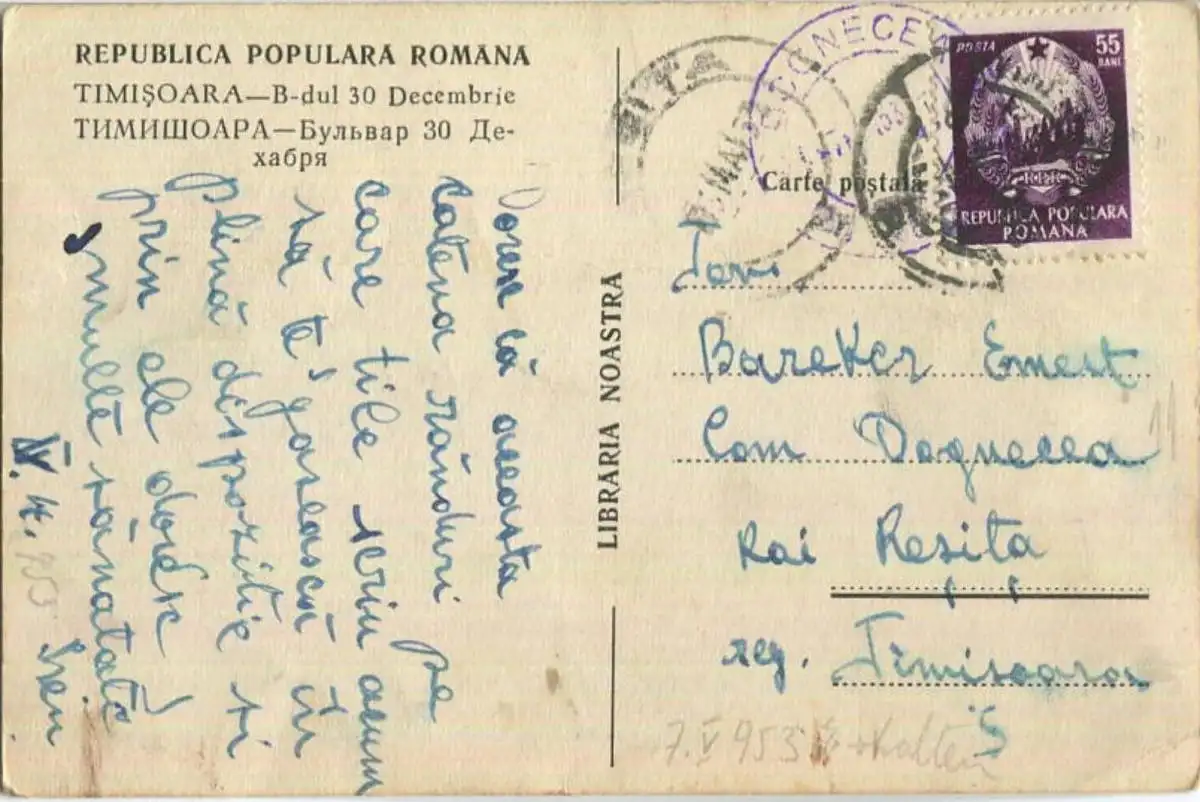 REPUBLICA POPULARĂ ROMÂNĂ
TIMIȘOARA—B-dul 30 Decembrie
ТИМИШОАРА—Бульвар 30 Де-
хабря
că aceasta
câteva rânduri pe
care tile scriu acum
să te găsească în
plină dispoziție și
prin ele doresc
multă sănătate
IV.
LIBRARIA NOASTRA
Carte poștală
POSTA
55
BANI
RPR
REPUBLICA POPULARA
ROMANA
Tov.
Bareker Ernest
Com Dognecea
Rai Reșița
reg. Timișoara
7.V 953